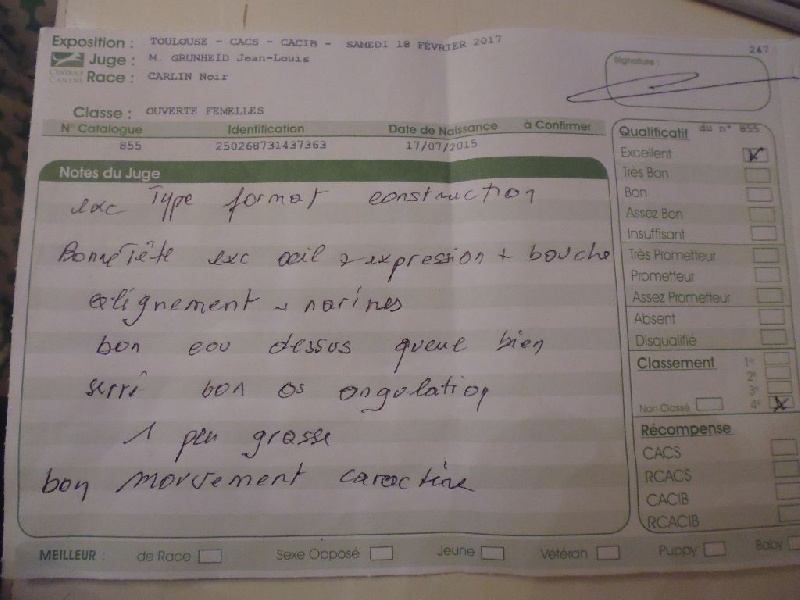 Exposition : TOULOUSE - CACS - CACIB - SAMEDI 18 FÉVRIER 2017
Juge : M. GRUNHEID Jean-Louis
Race : CARLIN Noir
CENTRALE CANINE
Classe : OUVERTE FEMELLES
247
Signature :
N° Catalogue Identification Date de Naissance à Confirmer
855 250268731437363 17/07/2015
Notes du Juge
exc Type format construction
Bonne Tête exc oeil + expression + bouche
alignement + narines
bon cou dessus queue bien
serré bon os angulation
1 peu grasse
bon mouvement caractère
Qualificatif du n° 855
Excellent X
Très Bon
Bon
Assez Bon
Insuffisant
Très Prometteur
Prometteur
Assez Prometteur
Absent
Disqualifié
Classement 1e
2e
3e
Non Classé 4e X
Récompense
CACS
RCACS
CACIB
RCACIB
MEILLEUR : de Race Sexe Opposé Jeune Vétéran Puppy Baby